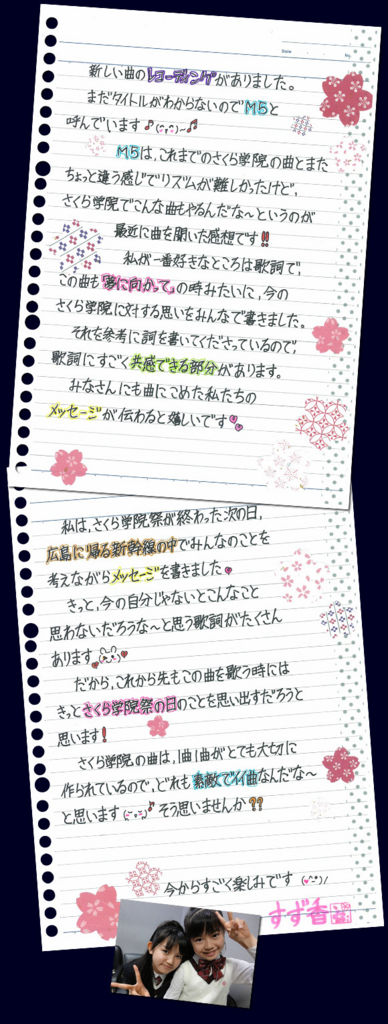 Date
No.
新しい曲のレコーディングがありました。
まだタイトルがわからないのでM5と
呼んでいます♪(˘ᵕ˘)~♬
M5は、これまでのさくら学院の曲とまた
ちょっと違う感じでリズムが難しかったけど、
さくら学院でこんな曲もやるんだな〜というのが
最近に曲を聞いた感想です!!
私が一番好きなところは歌詞で、
この曲も『夢に向かって』の時みたいに、今の
さくら学院に対する思いをみんなで書きました。
それを参考に詞を書いてくださっているので、
歌詞にすごく共感できる部分があります。
みなさんにも曲にこめた私たちの
メッセージが伝わると嬉しいです
私は、さくら学院祭が終わった次の日、
広島に帰る新幹線の中でみんなのことを
考えながらメッセージを書きました♥
きっと、今の自分じゃないとこんなこと
思わないだろうな〜と思う歌詞がたくさん
あります
だから、これから先もこの曲を歌う時には
きっとさくら学院祭の日のことを思い出すだろうと
思います!
さくら学院の曲は、1曲1曲がとても大切に
作られているので、どれも素敵でイイ曲なんだな〜
と思います そう思いませんか??
今からすごく楽しみです
すず香